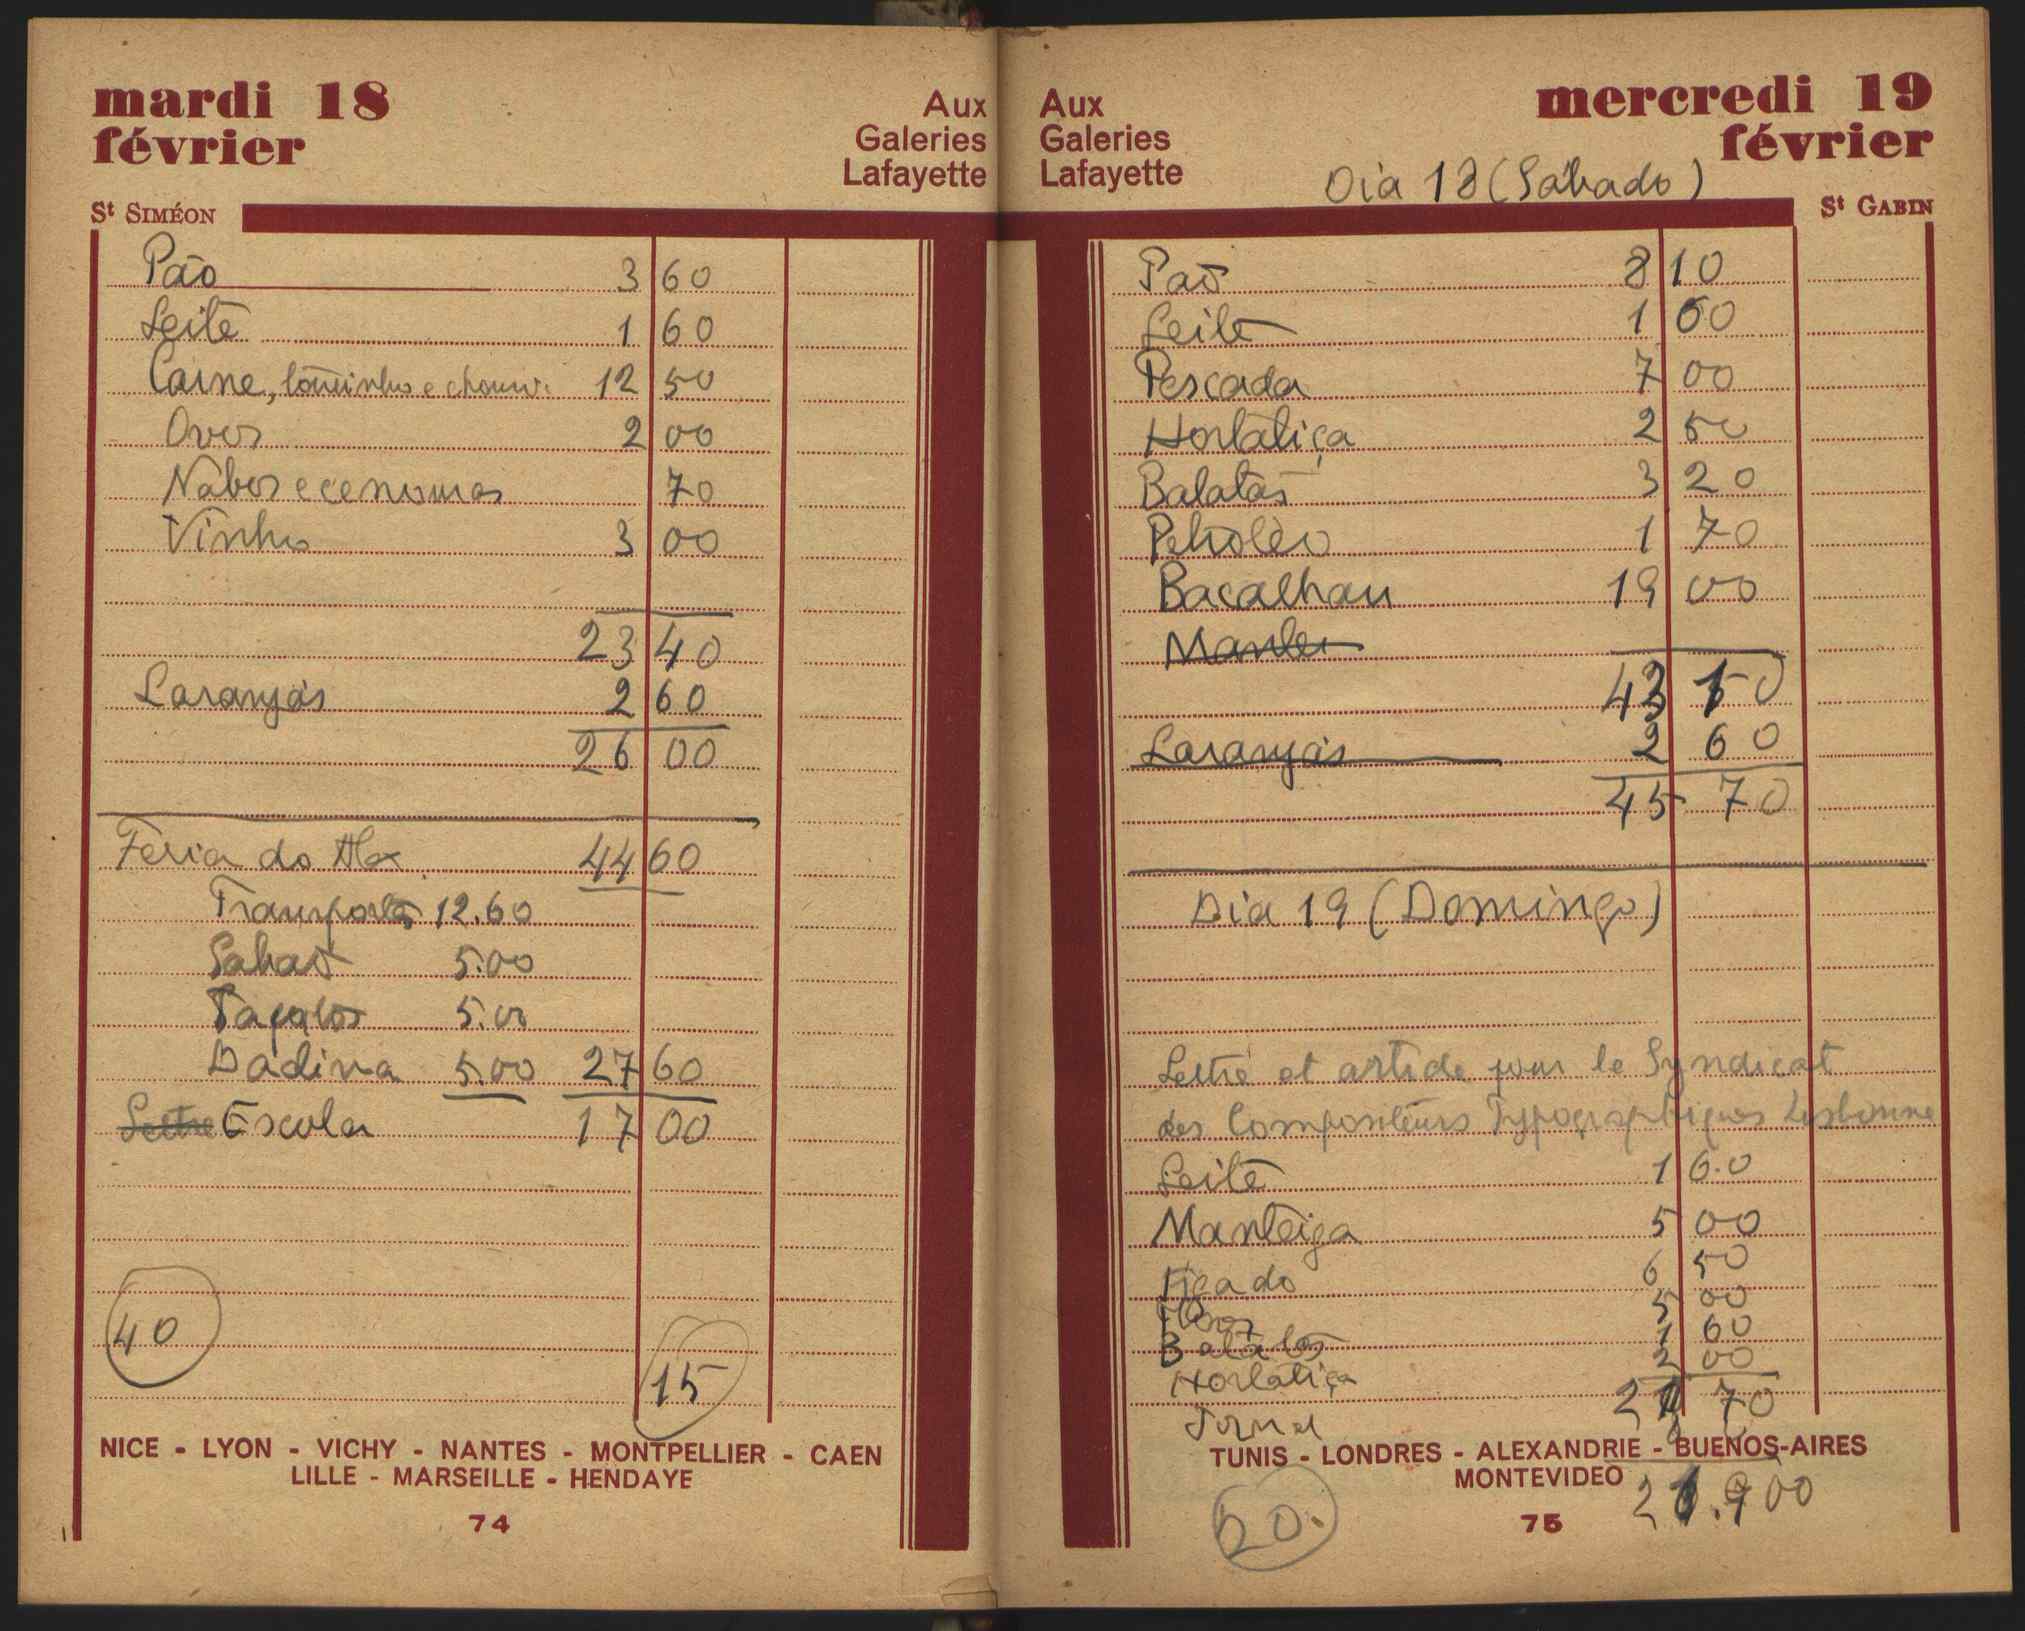 mardi 18
février
Aux
Galeries
Lafayette
St SIMÉON
Pão 3 60
Leite 1 60
Carne, toucinho e chouri. 12 50
Ovos 2 00
Nabos e cenouras 70
Vinho 3 00
23 40
Laranjas 2 60
26 00
Feria do Alex 44 60
Transportes 12.60
Sabão 5.00
5.00
Dádiva 5.00 27 60
Lettre Escola 17 00
40
15
NICE - LYON - VICHY - NANTES - MONTPELLIER - CAEN
LILLE - MARSEILLE - HENDAYE
74
Aux
Galeries
Lafayette
mercredi 19
février
Dia 18 (Sábado)
St GABIN
Pão 8 10
Leite 1 60
Pescada 7 00
Hortaliça 2 50
Batatas 3 20
Petroleo 1 70
Bacalhau 19 00
43 10
Laranjas 2 60
45 70
Dia 19 (Domingo)
Lettre et article pour le Syndicat
des Compositeurs Typographiques Lisbonne
Leite 1 60
Manteiga 5 00
Figado 6 50
Ovos 5 00
Batatas 1 60
Hortaliça 2 00
21 70
Jornal
TUNIS - LONDRES - ALEXANDRIE - BUENOS-AIRES
MONTEVIDEO
20.
75